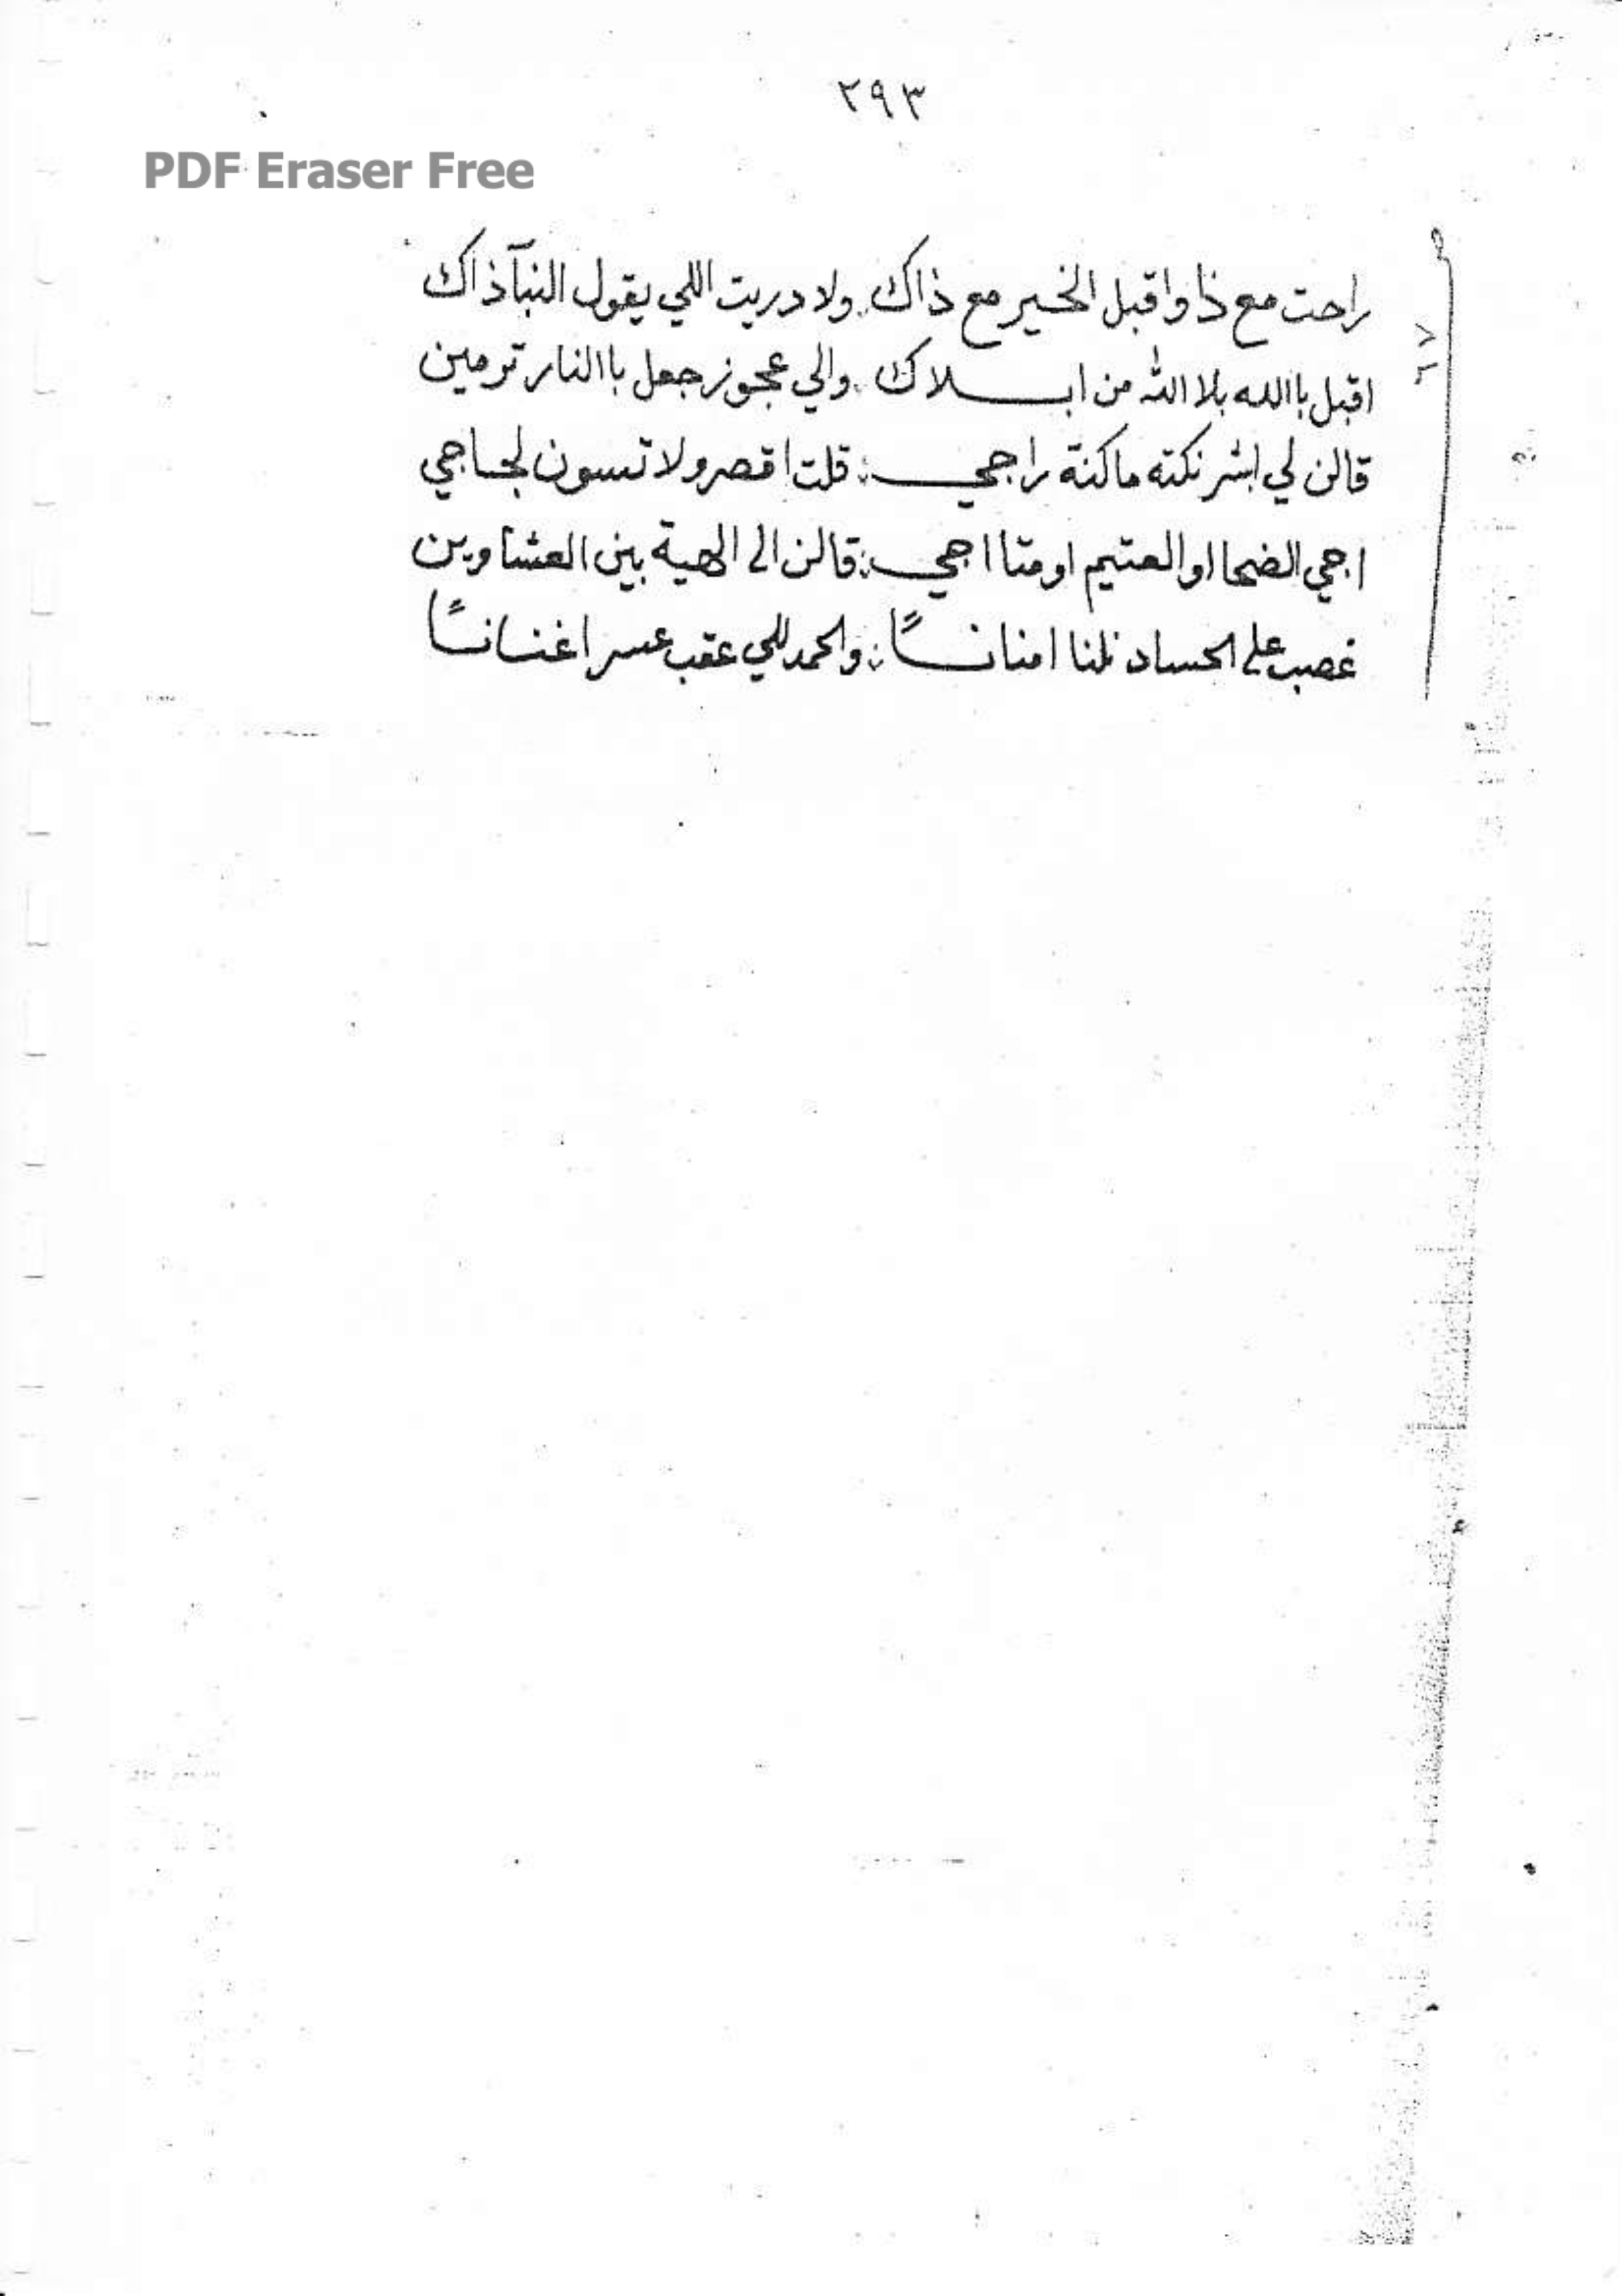 ٢٩٣
PDF Eraser Free
راحت مع ذا واقبل الخير مع ذاك . ولا دريت اللي يقول النبآ ذاك
اقبل باالله بلا الله من ابـــلاك . والي عجوز جعل باالنار ترمين
قالن لي ابشر نكته ماكنة راجحي : قلت اقصر ولا تسون لجاجي
اجي الضحا او العتيم او متا اجي : قالن الى الهية بين العشاوين
غصب على الحساد نلنا امنانــاً : والحمد للي عقب عسر اغنانــاً